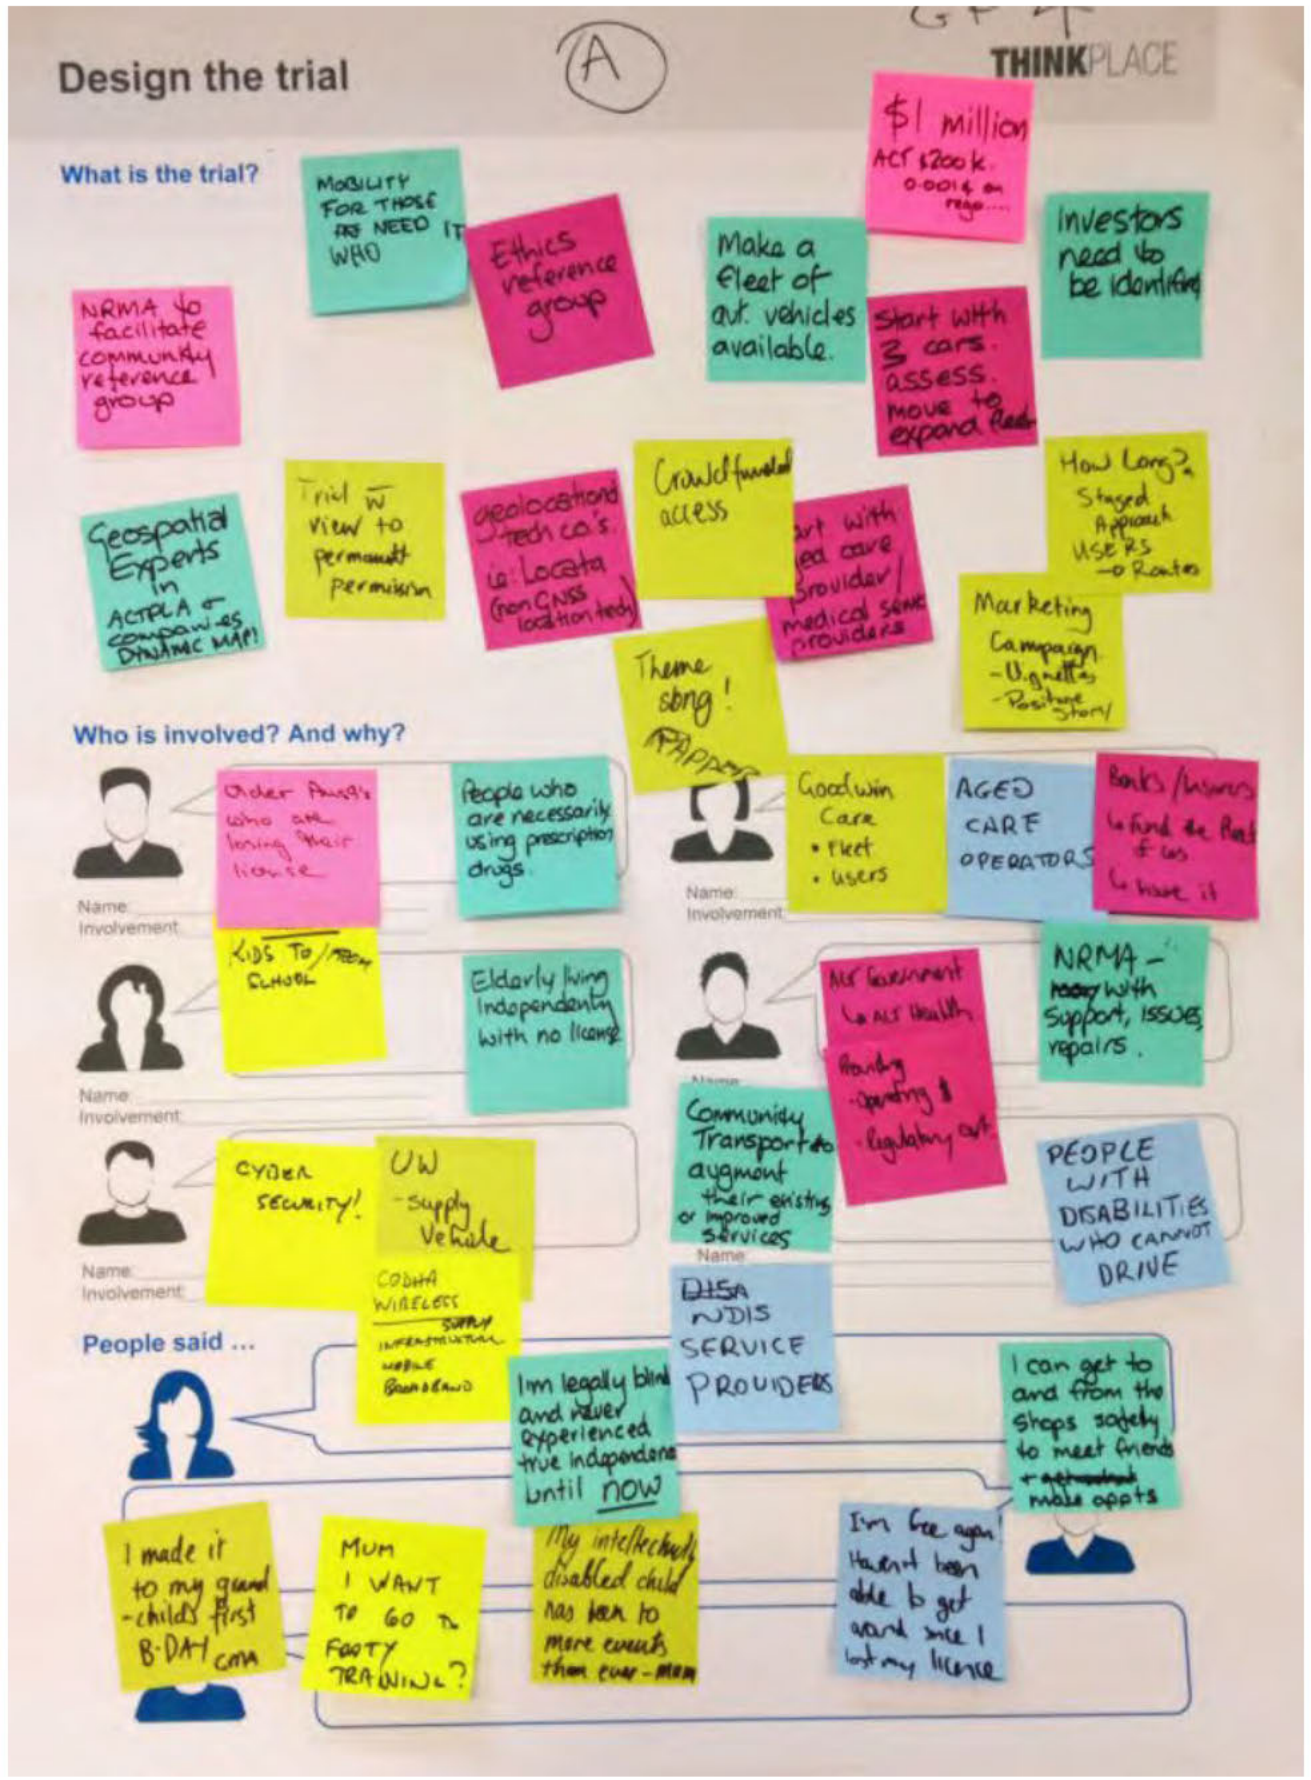 GP 4
A
Design the trial
THINKPLACE
What is the trial?
$1 million
ACT $200k.
0.001¢ on
rego....
MOBILITY
FOR THOSE
NEED IT
WHO
Ethics
reference
group
Make a
fleet of
aut. vehicles
available.
Investors
need to
be identified
NRMA to
facilitate
community
reference
group
Start with
3 cars.
assess.
move to
expand fleet
Geospatial
Experts
in
ACTPLA &
companies
DYNAMIC MAP!
Trial w
view to
permanent
permission
geolocational
tech co.'s
ie: Locata
(non GNSS
location tech)
Crowdfunded
access
art with
ed care
provider/
medical serv
providers
How Long?
Staged
Approach
USERS
→ Routes
Theme
song!
RAPPER
Marketing
Campaign
- Vignettes
- Positive
Story
Who is involved? And why?
Older
who are
losing their
license
People who
are necessarily
using prescription
drugs.
Goodwin
Care
• Fleet
• users
AGED
CARE
OPERATORS
Banks/Insurers
↳ fund the Rest
of us
↳ have it
Name:
Involvement:
Name:
Involvement:
KIDS TO/FROM
SCHOOL
Elderly living
Independently
with no license
ACT Government
↳ ACT Health
Providing
- Operating $
- Regulatory
NRMA -
with
support, issues,
repairs.
Name:
Involvement:
Name
Community
Transport to
augment
their existing
or improved
services
CYBER
SECURITY!
UW
- supply
Vehicle
PEOPLE
WITH
DISABILITIES
WHO CANNOT
DRIVE
Name:
Involvement:
Name:
COHDA
WIRELESS
SUPPLY
INFRASTRUCTURE
MOBILE
BROADBAND
DISA
NDIS
SERVICE
PROVIDERS
People said ...
I'm legally blind
and never
experienced
true independence
until now
I can get to
and from the
shops safely
to meet friends
+
make appts
I made it
to my grand
-child's first
B-DAY GMA
MUM
I WANT
TO GO TO
FOOTY
TRAINING?
My intellectually
disabled child
has been to
more events
than ever - mum
I'm free again!
Haven't been
able to get
around since I
lost my licence